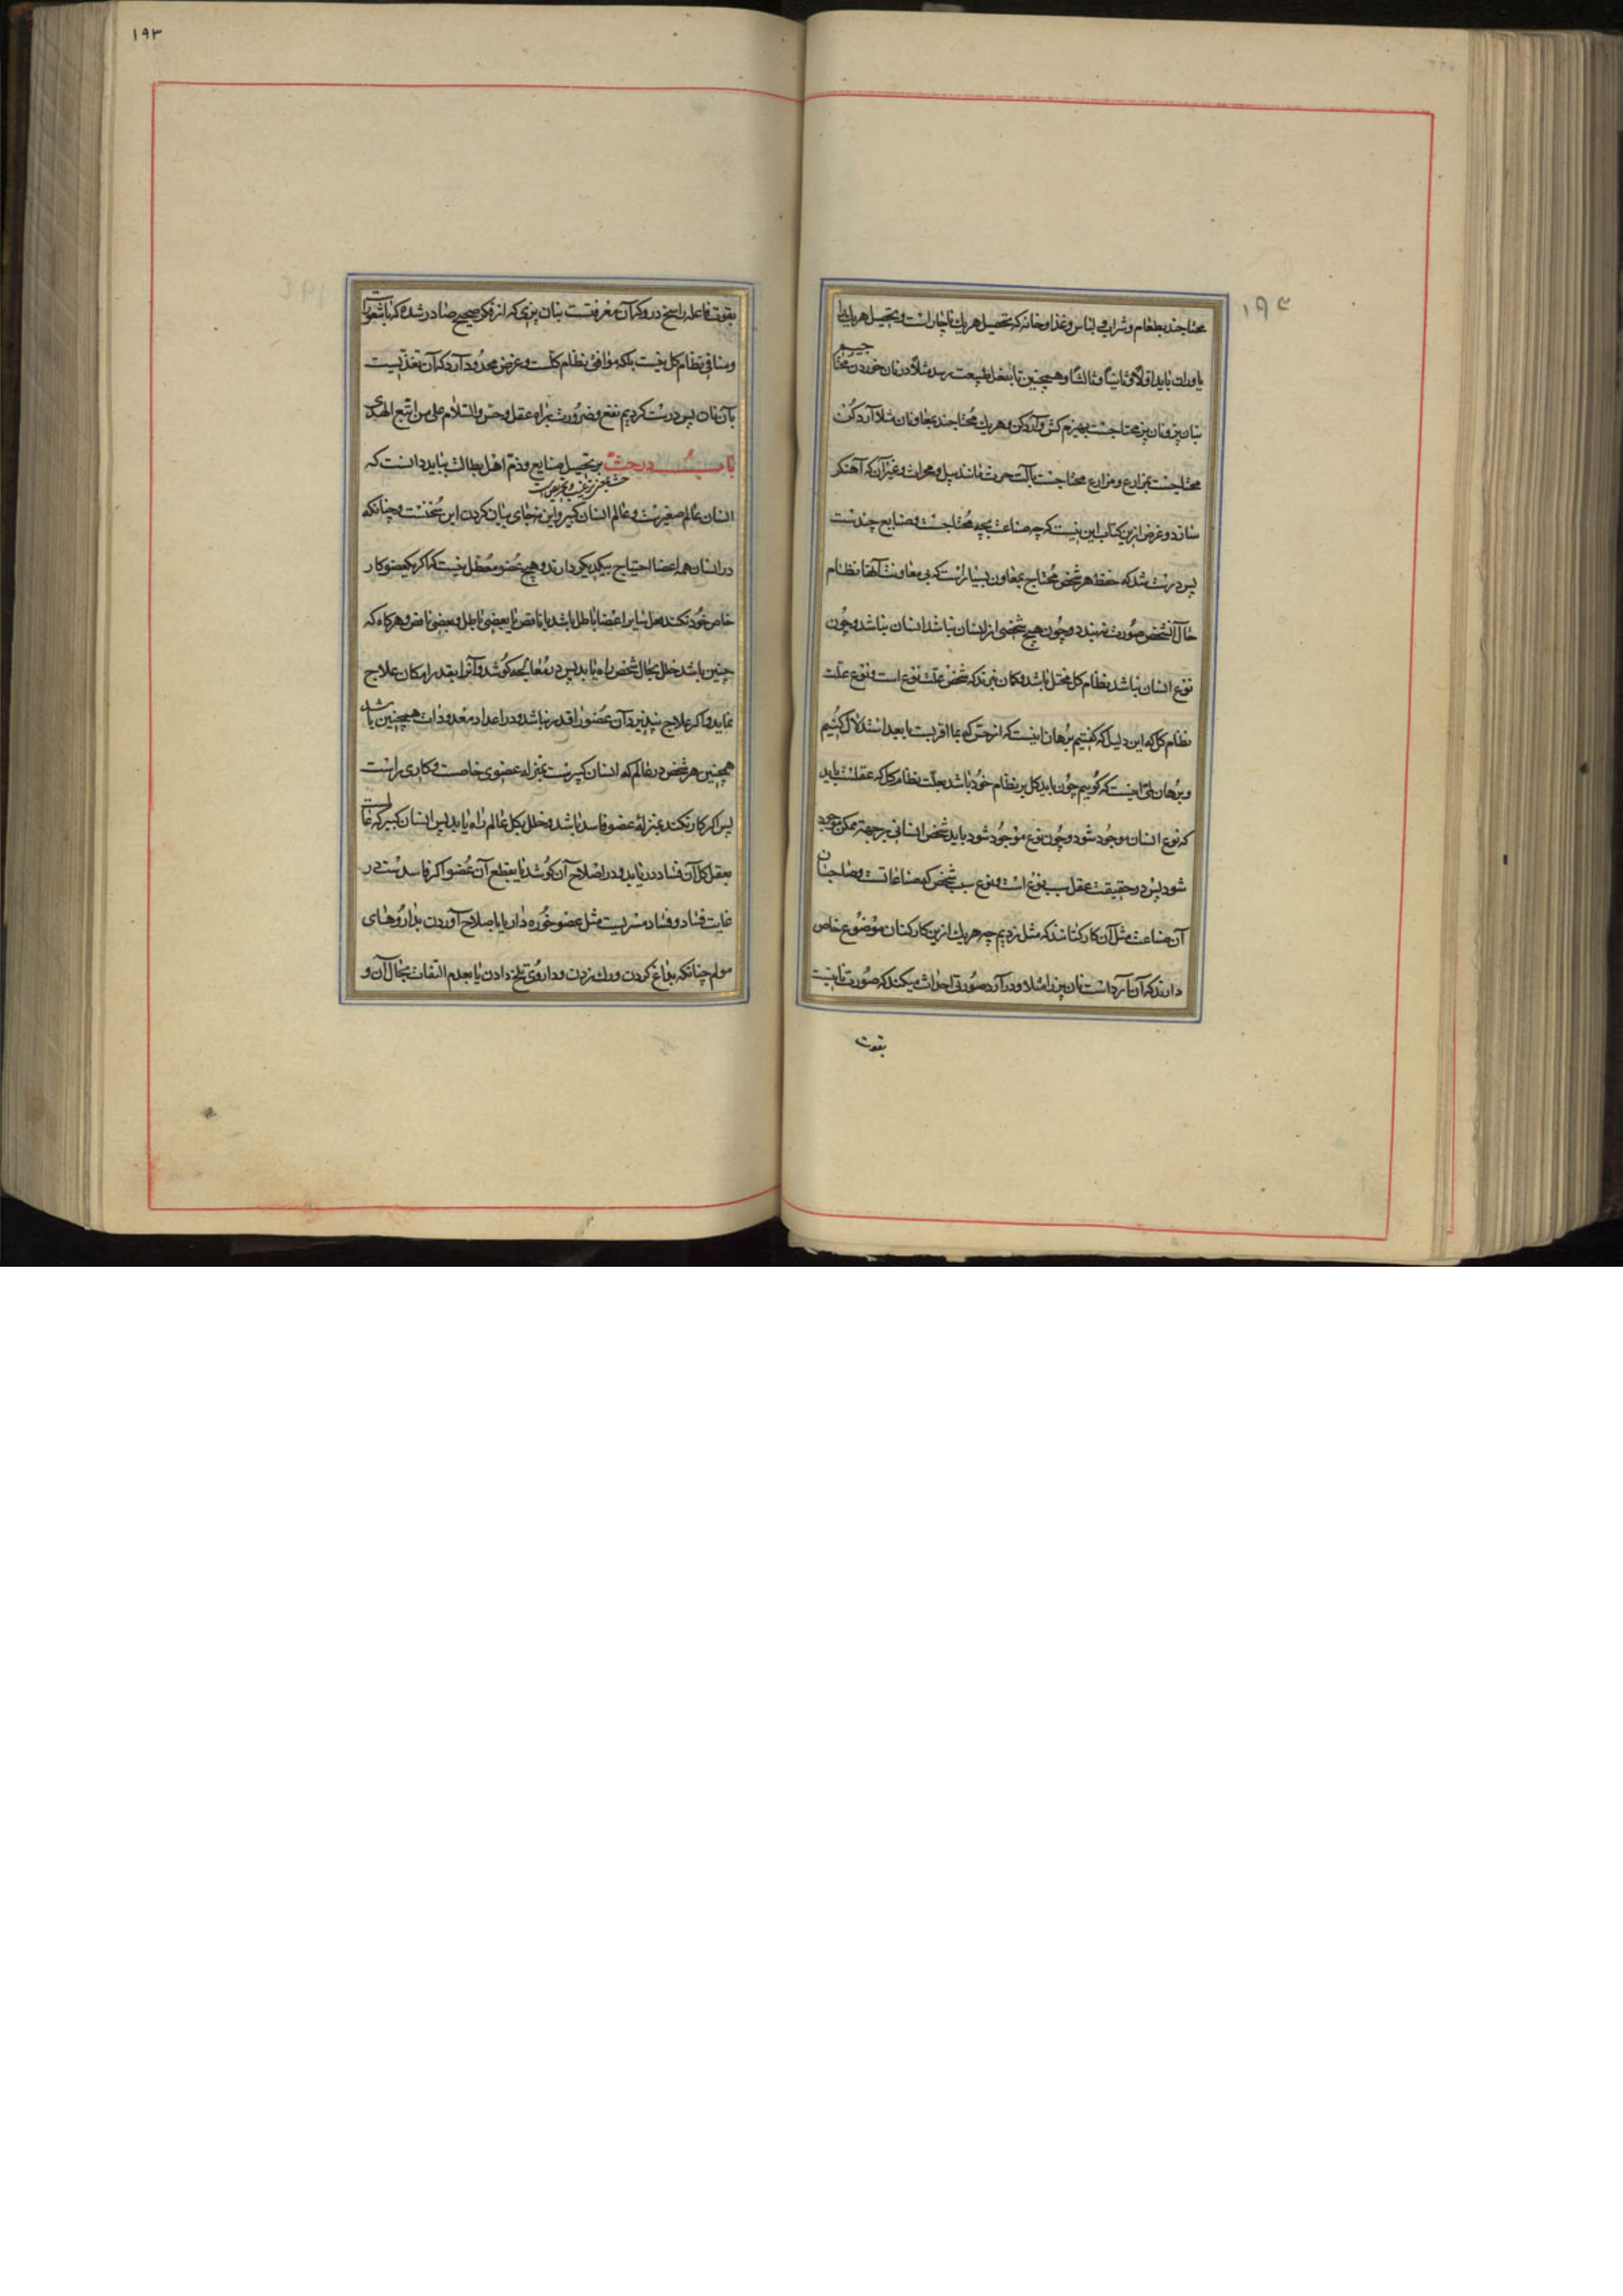 ۱۹۲
محتاجند بطعام و شراب و لباس و غذا و خانه که تحصیل هر یک ناچار است و بتحصیل هر یک
یاوران باید اولا و ثانیا و ثالثا و همچنین تا بفعل طبیعت رسد مثلا در نان خوردن محتا جیم
بنان پز و نان پز محتاجست بهیزم کش و آرد کن و هر یک محتاجند بمعاونان مثلا آرد کن
محتاجست بمزارع و مزارع محتاجست بآلت حرث مانند بیل و محراث و غیر آن که آهنگر
سازد و غرض ازین کتاب این نیست که چه صناعت بچه محتاجست و صنایع چندست
پس درست شد که حفظ هر شخص محتاج بمعاون بسیارست که بی معاونت آنها نظام
حال آنشخص صورت نبندد و چون هیچ شخصی از انسان نباشد انسان نباشد و چون
نوع انسان نباشد نظام کل مختل باشد و گمان نبرند که شخص علت نوع است و نوع علت
نظام کل که این دلیل که گفتیم برهان انیست که از حس که بما اقربست بابعد استدلال کنیم
و برهان لمی اینست که گوییم چون باید کل بر نظام خود باشد بعلت نظام کل که عقلست باید
که نوع انسان موجود شود و چون نوع موجود شود باید شخص انسانی بر جهة ممکن موجود
شود پس در حقیقت عقل سبب نوع است و نوع سبب شخص که صناعاتست و صاحبان
آن صناعت مثل آن کارکنانند که مثل زدیم چه هر یک ازین کارکنان موضوع خاص
دارند که آن آردست نان پز را مثلا و در آرد صورتی احداث میکند که صورت نانیست
بقوت
۱۹۳
بقوت فاعله راسخ درو که آن معرفتست بنان پزی که از فکر صحیح صادر شده که باشعورست
و منافی نظام کل نیست بلکه موافق نظام کلست و غرض محدود دارد که آن تغذیست
بآن نان پس درست کردیم نفع و ضرورت براه عقل و حس والسلام علی من اتبع الهدی
باب در حث بر تحصیل صنایع و ذم اهل بطالت بباید دانست که
حث بمعنی ترغیب و تحریض است
انسان عالم صغیرست و عالم انسان کبیر و این نه جای بیان کردن این سخنست و چنانکه
در انسان همه اعضا احتیاج بیکدیگر دارند و هیچ عضو معطل نیست که اگر یکعضو کار
خاص خود نکند فعل سایر اعضا باطل باشد یا ناقص یا بعضی باطل و بعضی ناقص و هرگاه که
چنین باشد خلل بحال شخص راه یابد پس در معالجه کوشد و آنرا بقدر امکان علاج
نماید و اگر علاج نپذیرد آن عضو را قدر نباشد و در اعداد معدودات همچنین باشد
همچنین هر شخص در عالم که انسان کبیرست بمنزله عضوی خاصست و کاری راست
پس اگر کار نکند بمنزلهٔ عضو فاسد باشد و خلل بکل عالم راه یابد پس انسان کبیر که عالمست
بعقل کل آن فساد دریابد و در اصلاح آن کوشد یا بقطع آن عضو اگر فاسدست در
غایت فساد و فساد مسریست مثل عضو خوره دار یا باصلاح آوردن بداروهای
مولم چنانکه بداغ کردن و رک زدن و داروی تلخ دادن یا بعدم التفات بحال آن و